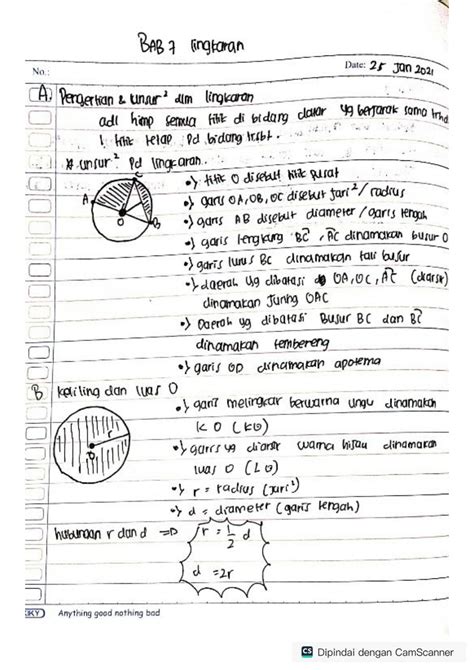 BAB 7 lingkaran
No.:
Date: 25 Jan 2021
A. Pengertian & unsur² dlm lingkaran
adl himp semua titik di bidang datar yg berjarak sama trhd
1 titik tetap pd bidang trsbt.
* unsur² pd lingkaran.
C
A
O
B
•} titik O disebut titik pusat
•} garis OA, OB, OC disebut jari²/radius
•} garis AB disebut diameter/garis tengah
•} garis lengkung BC, AC dinamakan busur O
•} garis lurus BC dinamakan tali busur
•} daerah yg dibatasi OA, OC, AC (diarsir)
dinamakan juring OAC
•} Daerah yg dibatasi Busur BC dan BC
dinamakan tembereng
•} garis OD dinamakan apotema
B keliling dan luas O
r
O
•} garis melingkar berwarna ungu dinamakan
K O (KO)
•} garis yg diarsir warna hijau dinamakan
luas O (LO)
•} r = radius (jari²)
•} d = diameter (garis tengah)
hubungan r dan d =D
r = 1/2 d
d = 2r
KY
Anything good nothing bad
CS Dipindai dengan CamScanner